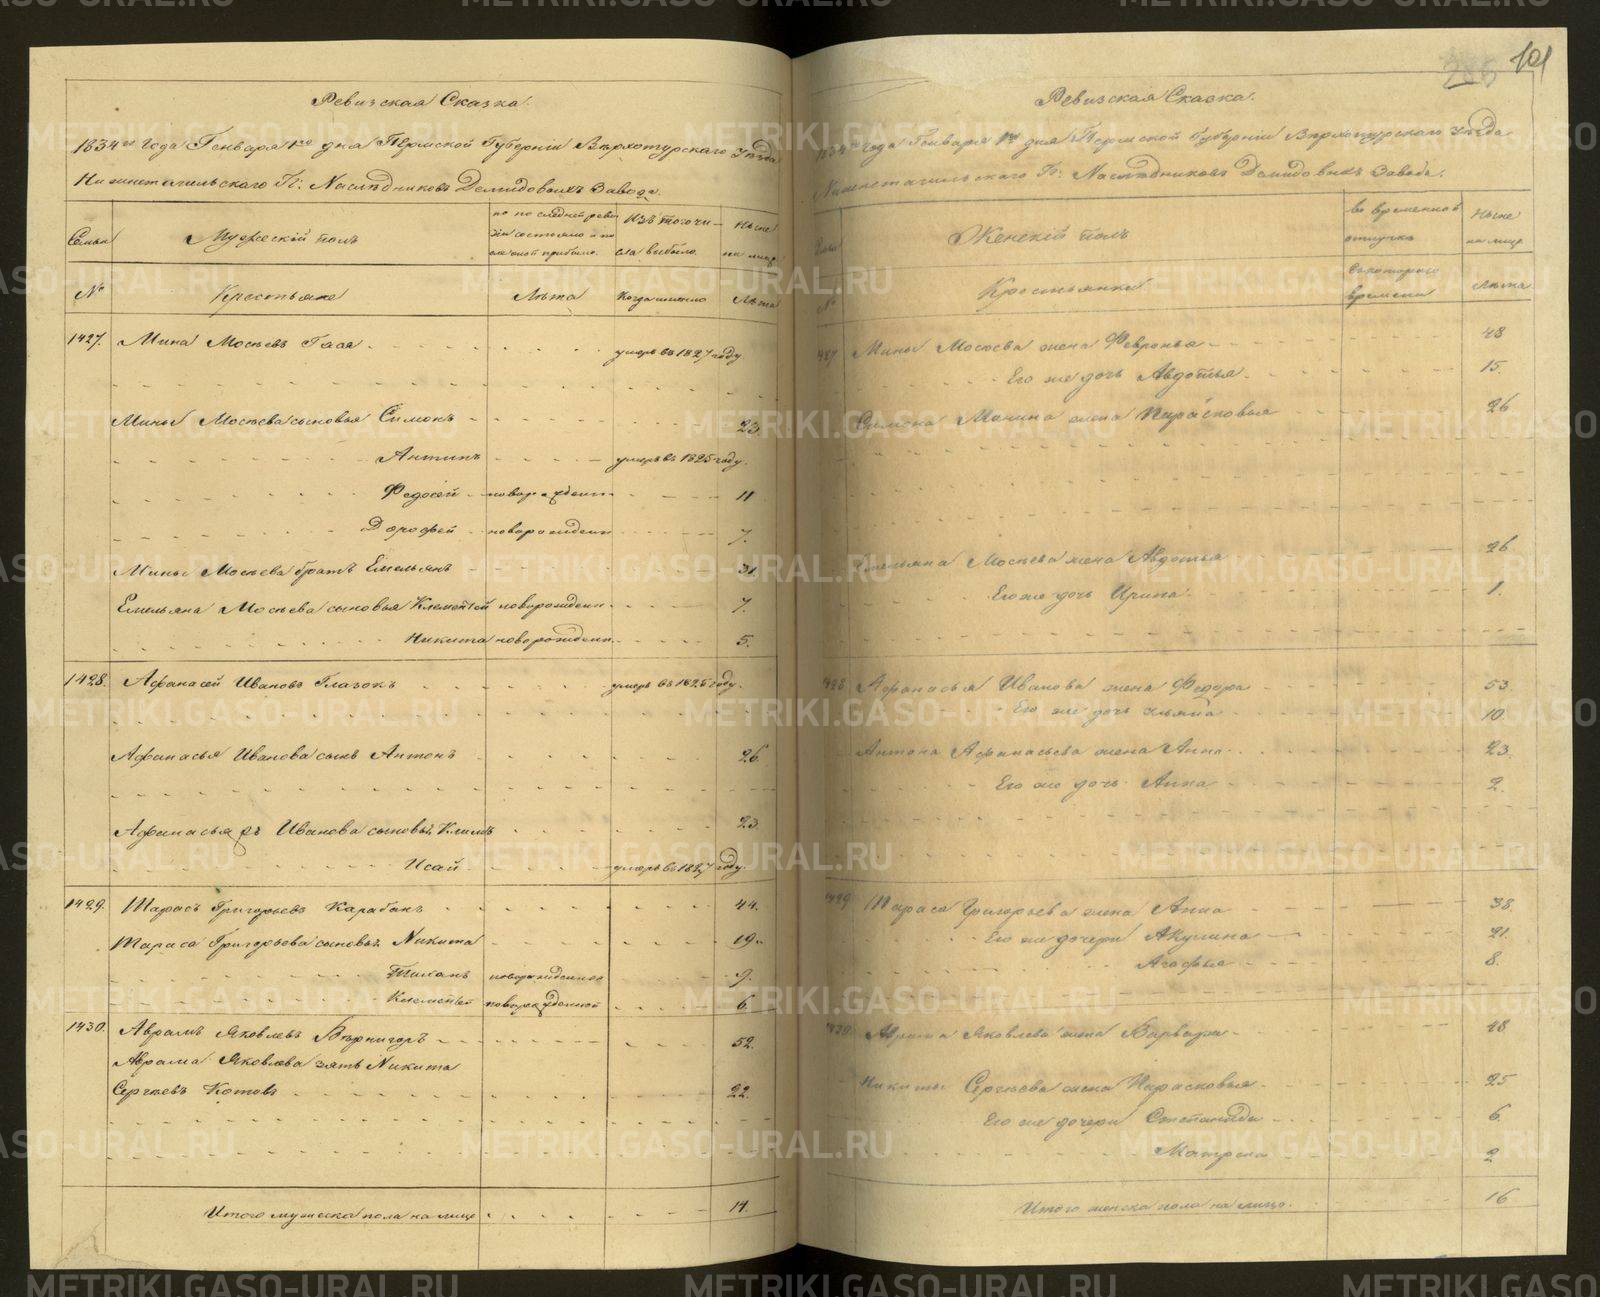 Ревизская Сказка.
1834го года Генваря 1го дня Пермской Губернии Верхотурскаго Уезда
Нижнетагильскаго Г: Наследников Демидовых Завода.
Семьи
Мужеский полъ
по последней реви
зии состояло и по
слеоной прибыло.
Изъ того чи-
сла выбыло.
Ныне
на лицо
№
Крестьяне
Лета
Когда имянно
Лета
1427. Мина Мосеевъ Гася умеръ въ 1827 году.
Мины Мосеева сыновья Симонъ 23
Антипъ умеръ въ 1825 году.
Федосей новорожденн. 11
Дорофей новорожденн 7.
Мины Мосеева братъ Емельянъ 31.
Емельяна Мосеева сыновья Клементей новорожденн. 7.
Никита новорожденн. 5.
1428. Афанасей Ивановъ Глазокъ умеръ въ 1825 году.
Афанасья Иванова сынъ Антонъ 26.
Афанасья Иванова сыновья Климъ 23.
Исай умеръ въ 1827 году.
1429. Тарасъ Григорьевъ Карабанъ 44.
Тараса Григорьева сыновья Никита 19.
Тихонъ новорожденной 9.
Клементей новорожденной 6.
1430. Аврамъ Яковлевъ Вернигоръ 52.
Аврама Яковлева зять Никита
Сергеевъ Котовъ 22.
Итого мужеска пола на лицо 14.
101
Ревизская Сказка.
1834го года Генваря 1го дня Пермской Губернии Верхотурскаго Уезда
Нижнетагильскаго Г: Наследников Демидовых Завода.
Семьи
Женский полъ
во временной
отлучке
Ныне
на лицо
№
Крестьянки
съ котораго
времени
Лета
1427 Мины Мосеева жена Февронья 48
Его же дочь Авдотья 15.
Симона Минина жена Парасковья 26
Емельяна Мосеева жена Авдотья 26
Его же дочь Ирина 1.
1428 Афанасья Иванова жена Федора 53.
Его же дочь 10.
Антона Афанасьева жена Анна 23.
Его же дочь Анна 2.
1429 Тараса Григорьева жена Анна 38.
Его же дочери Акулина 21.
Агафья 8.
1430. Аврама Яковлева жена Варвара 48
Никиты Сергеева жена Парасковья 25
Его же дочери Степанида 6.
Матрена 2
Итого женска пола на лицо. 16
METRIKI.GASO-URAL.RU